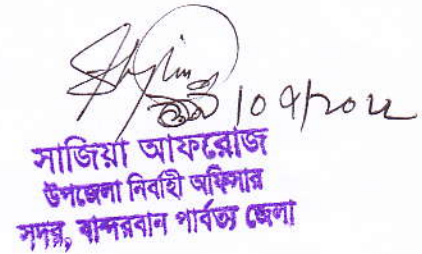 সাজিয়া আফরোজ
উপজেলা নির্বাহী অফিসার
সদর, বান্দরবান পার্বত্য জেলা